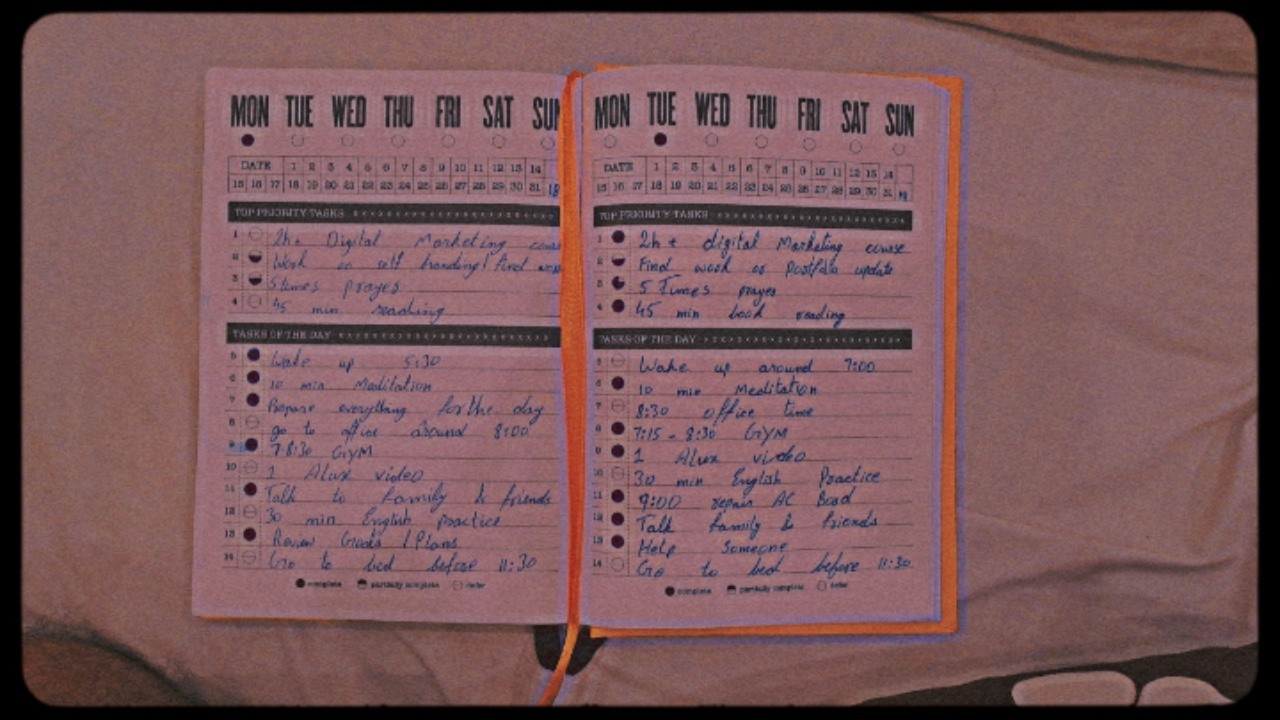 MON TUE WED THU FRI SAT SUN
DATE 1 2 3 4 5 6 7 8 9 10 11 12 13 14
15 16 17 18 19 20 21 22 23 24 25 26 27 28 29 30 31
TOP PRIORITY TASKS
1 2h+ Digital Marketing
2 Work on self branding! Find
3 5 times prayes
4 45 min reading
TASKS OF THE DAY
5 Wake up 5:30
6 10 min Meditation
7 Prepare everything for the day
8 go to office around 8:00
9 7-8:30 GYM
10 1 Alux video
11 Talk to family & friends
12 30 min English practice
13 Review Goals / Plans
14 Go to bed before 11:30
complete partially complete defer
MON TUE WED THU FRI SAT SUN
DATE 1 2 3 4 5 6 7 8 9 10 11 12 13 14
15 16 17 18 19 20 21 22 23 24 25 26 27 28 29 30 31 19
TOP PRIORITY TASKS
1 2h+ digital Marketing course
2 Find work or Portfolio update
3 5 Times prayes
4 45 min book reading
TASKS OF THE DAY
5 Wake up around 7:00
6 10 min Meditation
7 8:30 office time
8 7:15 - 8:30 GYM
9 1 Alux video
10 30 min English Practice
11 9:00 repair AC
12 Talk family & friends
13 Help Someone
14 Go to bed before 11:30
complete partially complete defer